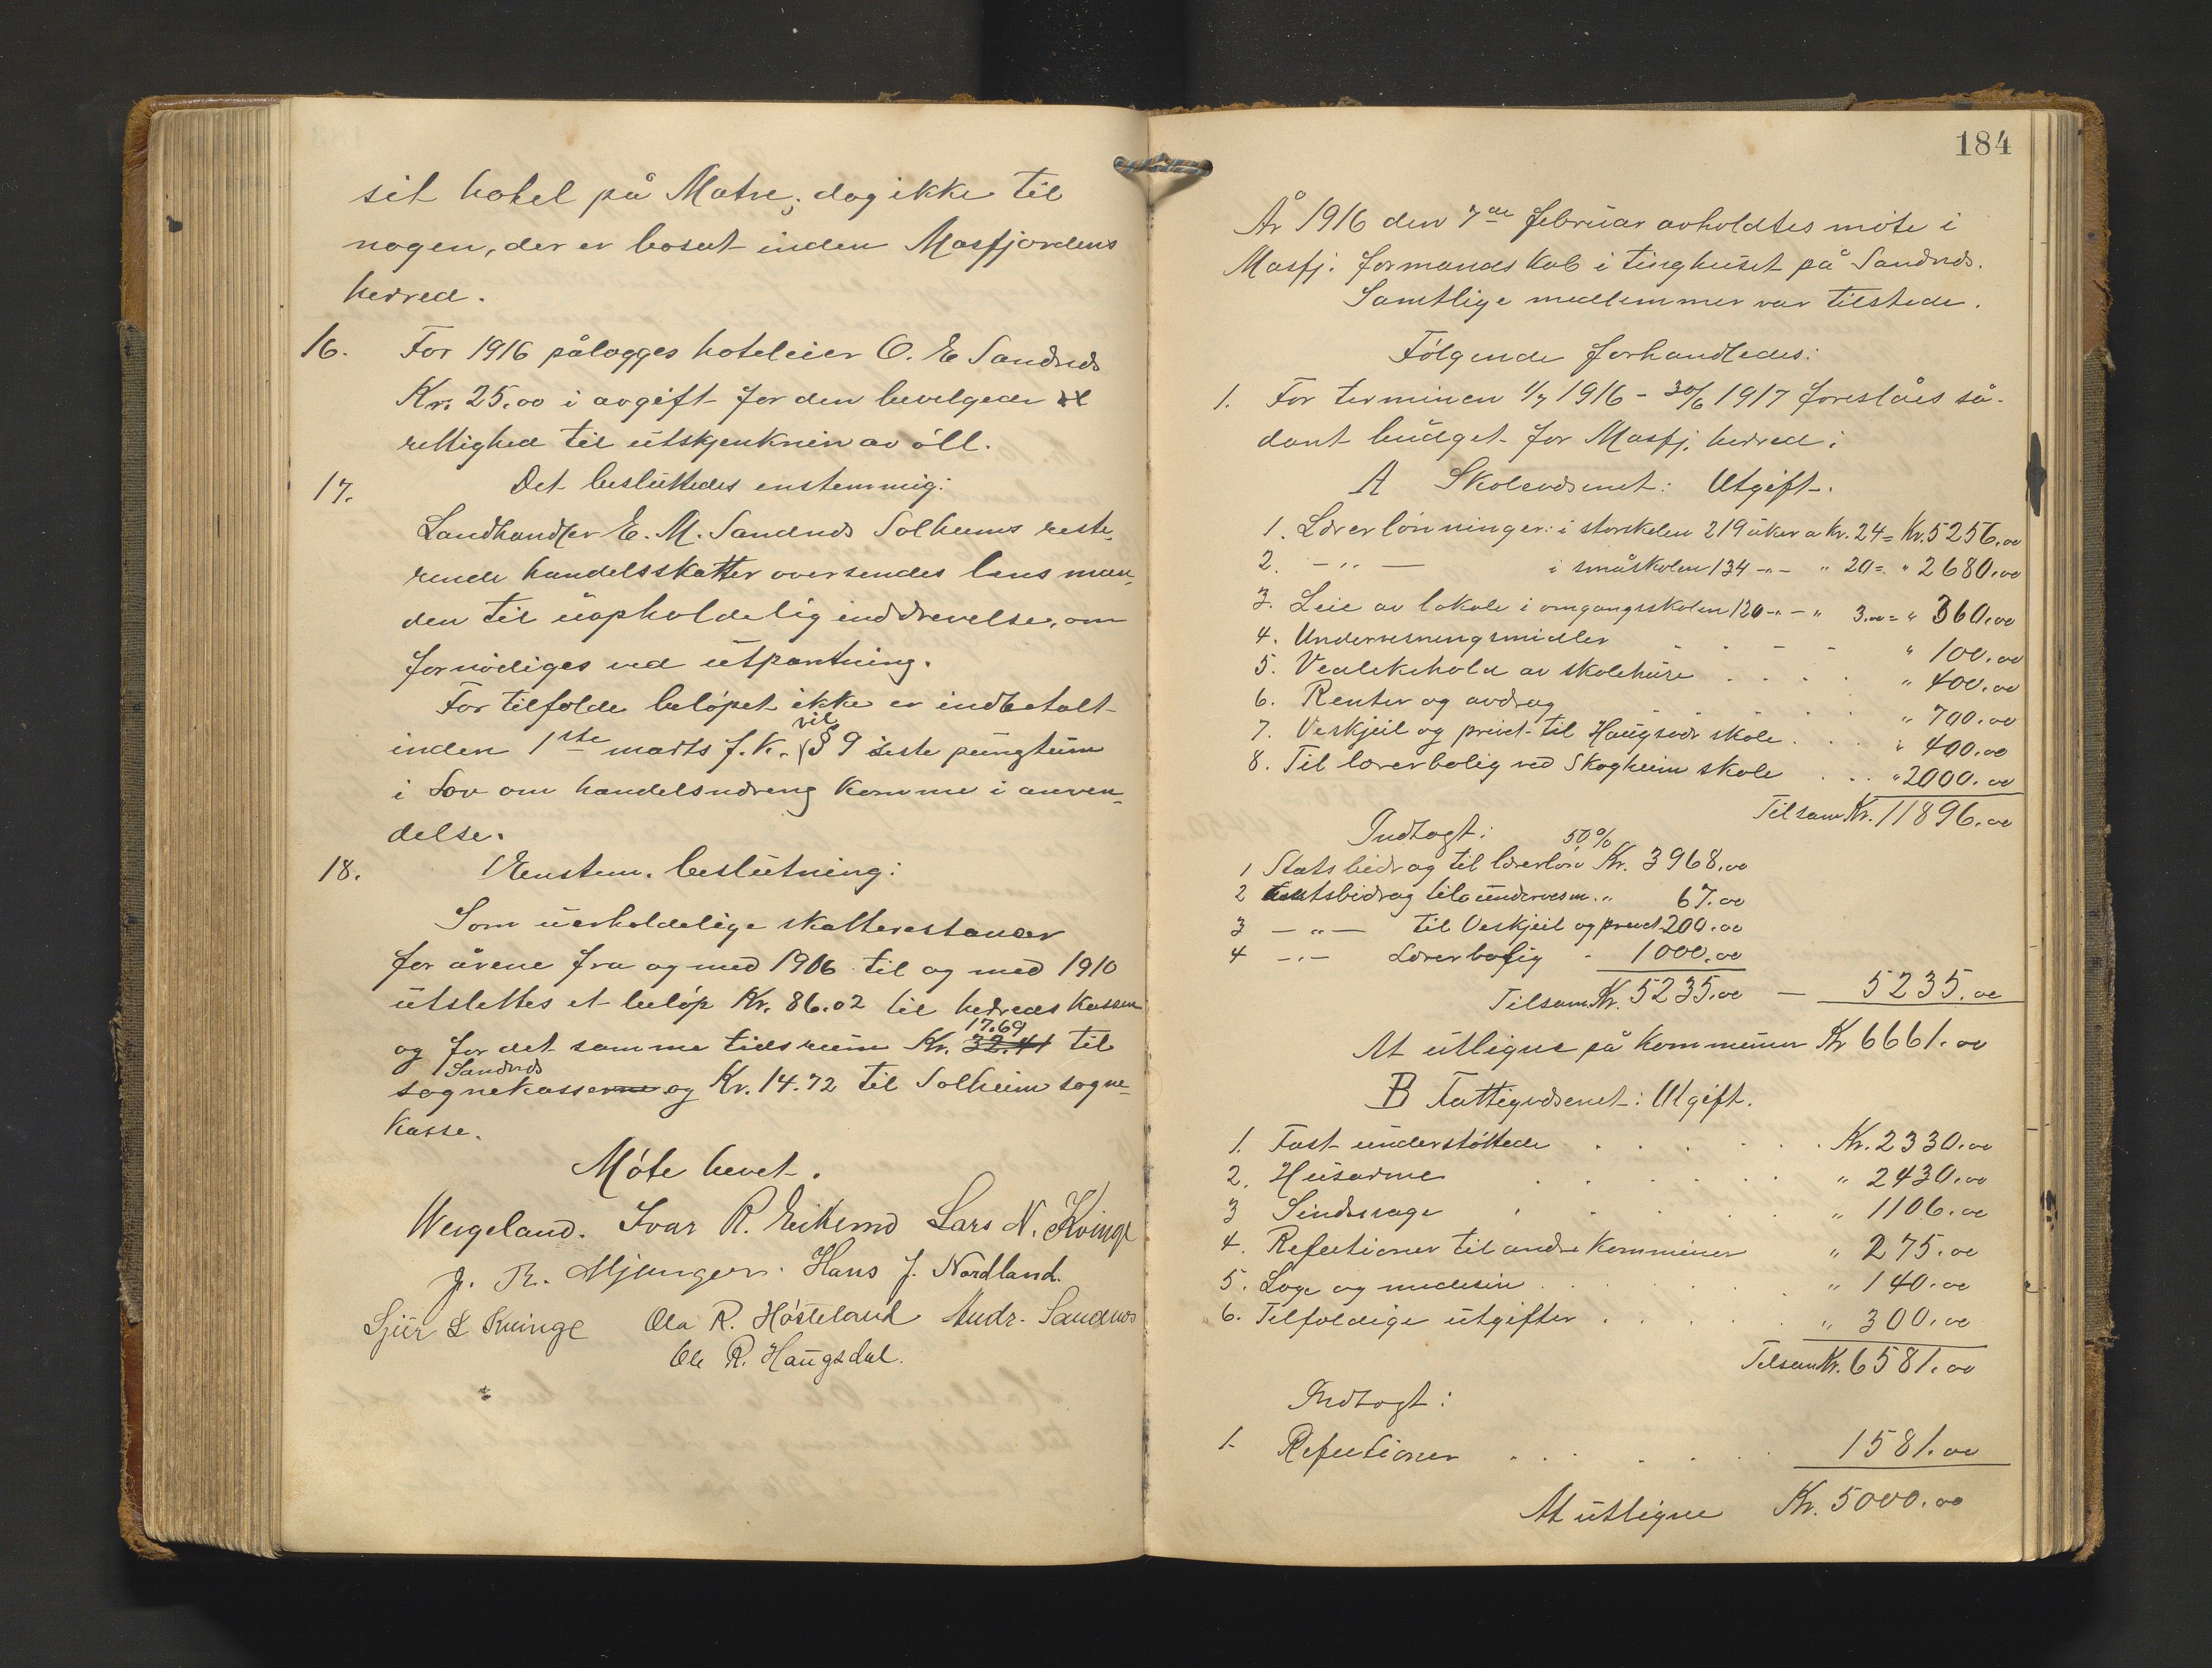 sit hotel på Matre; dog ikke til
nogen, der er bosat inden Masfjordens
herred.
16. For 1916 pålægges hoteleier O. E Sandnæs
Kr. 25.00 i avgift for den bevelgede
rettighed til utskjenknin av öll.
17. Det besluttedes enstemmig:
Landhandler E. M. Sandnæs Solheims reste-
rende handelsskatter oversendes lensman-
den til uopholdelig inddrevelse, om
fornödiges ved utpantning.
For tilfælde belöpet ikke er indbetalt
inden 1ste marts f. k. vil § 9 siste pungtum
i Lov om handelsnæreng komme i anven-
delse.
18. Eenstem. beslutning:
Som uerholdelige skatterestancer
for årene fra og med 1906 til og med 1910
utslettes et belöp Kr. 86.02 til herredskassen
og for det samme tidsrum Kr. 32.41 17.69 til
Sandnæs
sognekasserne og Kr. 14.72 til Solheim sogne-
kasse.
Möte hevet.
Wergeland. Ivar R. Eikemo Lars N. Kvinge
J. R. Mjanger. Hans J. Nordland.
Sjur L Kvinge Ola R. Hösteland Andr. Sandnæs
Ole R. Haugsdal.
184
År 1916 den 7de februar avholdtes möte i
Masfj. formandskab i tinghuset på Sandnæs.
Samtlige medlemmer var tilstede.
Fölgende forhandledes:
1. For terminen 1/7 1916 - 30/6 1917 foreslåes så-
dant budget for Masfj. herred:
A Skolevæsenet: Utgift.
1. Lærerlönninger: i storskolen 219 uker a Kr. 24 = Kr. 5256.00
2. -„- i småskolen 134 -„- „ 20 = „ 2680.00
3. Leie av lokale i omgangsskolen 120 -„- „ 3.00 = „ 360.00
4. Undervisningsmidler „ 100.00
5. Vedlekehold av skolehuse „ 400.00
6. Renter og avdrag „ 700.00
7. Veskjeil og privet til Haugsvær skole „ 400.00
8. Til lærerbolig ved Skogheim skole „ 2000.00
Tilsam Kr. 11896.00
Indtægt:
50%
1 Statsbidrag til lærerlön Kr. 3968.00
2 Amtsbidrag til undervesm. „ 67.00
3 -„- til Veskjeil og privet 200.00
4 -„- Lærerbolig - 1000.00
Tilsam Kr. 5235.00 — 5235.00
At utligne på kommunen Kr 6661.00
B Fattigvæsenet: Utgift.
1. Fast understöttede Kr. 2330.00
2. Husarme „ 2430.00
3 Sindssvage „ 1106.00
4. Refutioner til andre kommuner „ 275.00
5. Læge og medesin „ 140.00
6. Telfældige utgifter „ 300.00
Telsam Kr. 6581.00
Indtægt:
1. Refutioner 1581.00
At utligne Kr. 5000.00